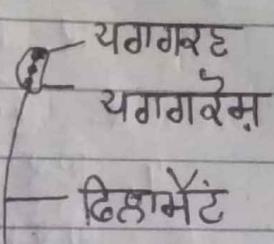 ਪਰਾਗਕਣ
ਪਰਾਗਕੋਸ਼
ਫਿਲਾਮੈਂਟ